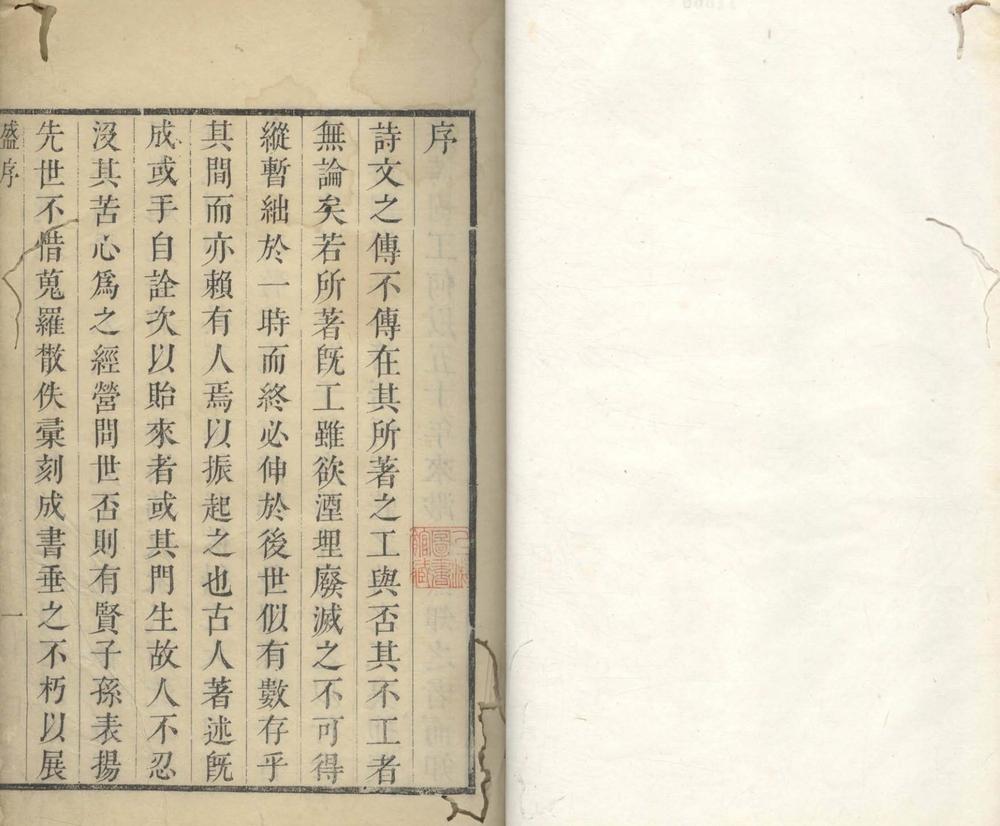 序
詩文之傳不傳在其所著之工與否其不工者
無論矣若所著旣工雖欲湮埋廢滅之不可得
縱暫絀於一時而終必伸於後世似有數存乎
其間而亦賴有人焉以振起之也古人著述旣
成或手自詮次以貽來者或其門生故人不忍
沒其苦心爲之經營問世否則有賢子孫表揚
先世不惜蒐羅散佚彙刻成書垂之不朽以展
盛序
一